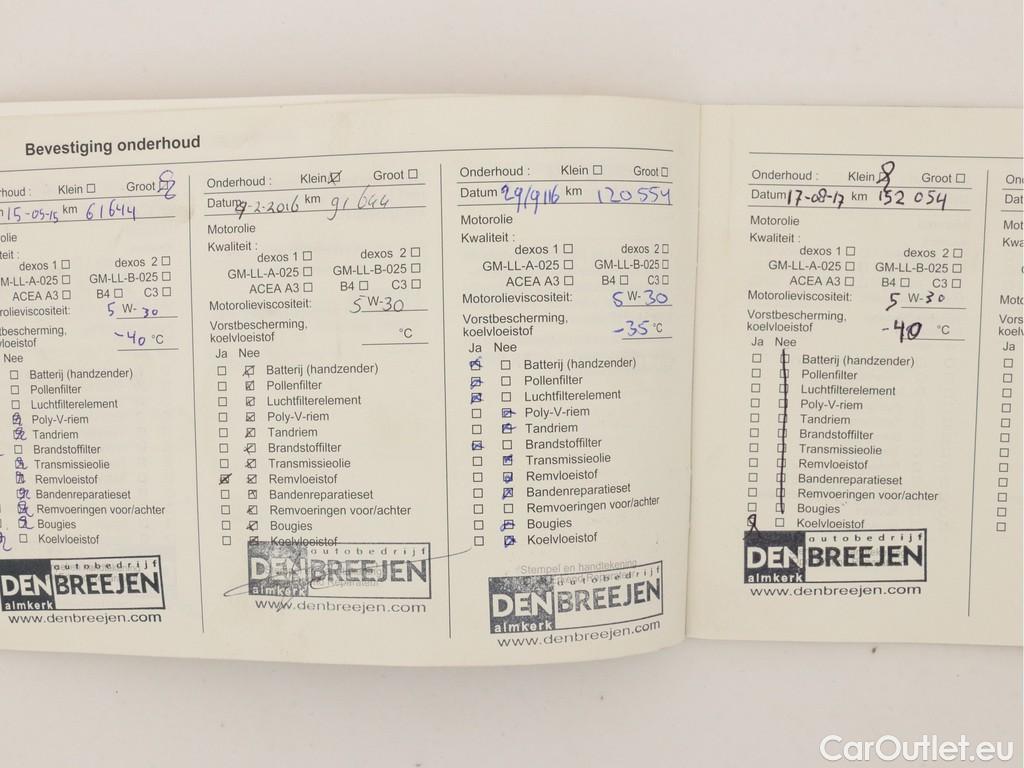 Bevestiging onderhoud
houd : Klein Groot
15-05-15 km 61644
olie
teit :
dexos 1 dexos 2
M-LL-A-025 GM-LL-B-025
ACEA A3 B4 C3
rolieviscositeit: 5 W- 30
tbescherming,
vloeistof -40 °C
Nee
Batterij (handzender)
Pollenfilter
Luchtfilterelement
Poly-V-riem
Tandriem
Brandstoffilter
Transmissieolie
Remvloeistof
Bandenreparatieset
Remvoeringen voor/achter
Bougies
Koelvloeistof
autobedrijf
DEN BREEJEN
almkerk
www.denbreejen.com
Onderhoud : Klein Groot
Datum 9-2-2016 km 91644
Motorolie
Kwaliteit :
dexos 1 dexos 2
GM-LL-A-025 GM-LL-B-025
ACEA A3 B4 C3
Motorolieviscositeit: 5 W-30
Vorstbescherming,
koelvloeistof °C
Ja Nee
Batterij (handzender)
Pollenfilter
Luchtfilterelement
Poly-V-riem
Tandriem
Brandstoffilter
Transmissieolie
Remvloeistof
Bandenreparatieset
Remvoeringen voor/achter
Bougies
Koelvloeistof
autobedrijf
DEN BREEJEN
almkerk
www.denbreejen.com
Onderhoud : Klein Groot
Datum 29/9/16 km 120554
Motorolie
Kwaliteit :
dexos 1 dexos 2
GM-LL-A-025 GM-LL-B-025
ACEA A3 B4 C3
Motorolieviscositeit: 5 W- 30
Vorstbescherming,
koelvloeistof -35 °C
Ja Nee
Batterij (handzender)
Pollenfilter
Luchtfilterelement
Poly-V-riem
Tandriem
Brandstoffilter
Transmissieolie
Remvloeistof
Bandenreparatieset
Remvoeringen voor/achter
Bougies
Koelvloeistof
Stempel en handtekening
autobedrijf
DEN BREEJEN
almkerk
www.denbreejen.com
Onderhoud : Klein Groot
Datum 17-08-17 km 152 054
Motorolie
Kwaliteit :
dexos 1 dexos 2
GM-LL-A-025 GM-LL-B-025
ACEA A3 B4 C3
Motorolieviscositeit: 5 W-30
Vorstbescherming,
koelvloeistof -40 °C
Ja Nee
Batterij (handzender)
Pollenfilter
Luchtfilterelement
Poly-V-riem
Tandriem
Brandstoffilter
Transmissieolie
Remvloeistof
Bandenreparatieset
Remvoeringen voor/achter
Bougies
Koelvloeistof
autobedrijf
DEN BREEJEN
almkerk
www.denbreejen.com
Ja
CarOutlet.eu